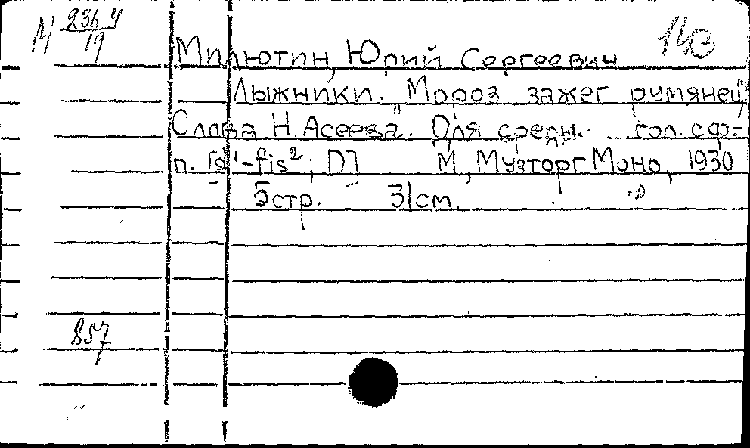 М 236 4
19
140
Милютин, Юрий Сергеевич
Лыжники. "Мороз зажег румянец"
Слова Н. Асеева. Для средн. гол. с ф-
п. [d¹-fis²; D] М., Музторг Моно, 1930
5 стр. 31 см.
857